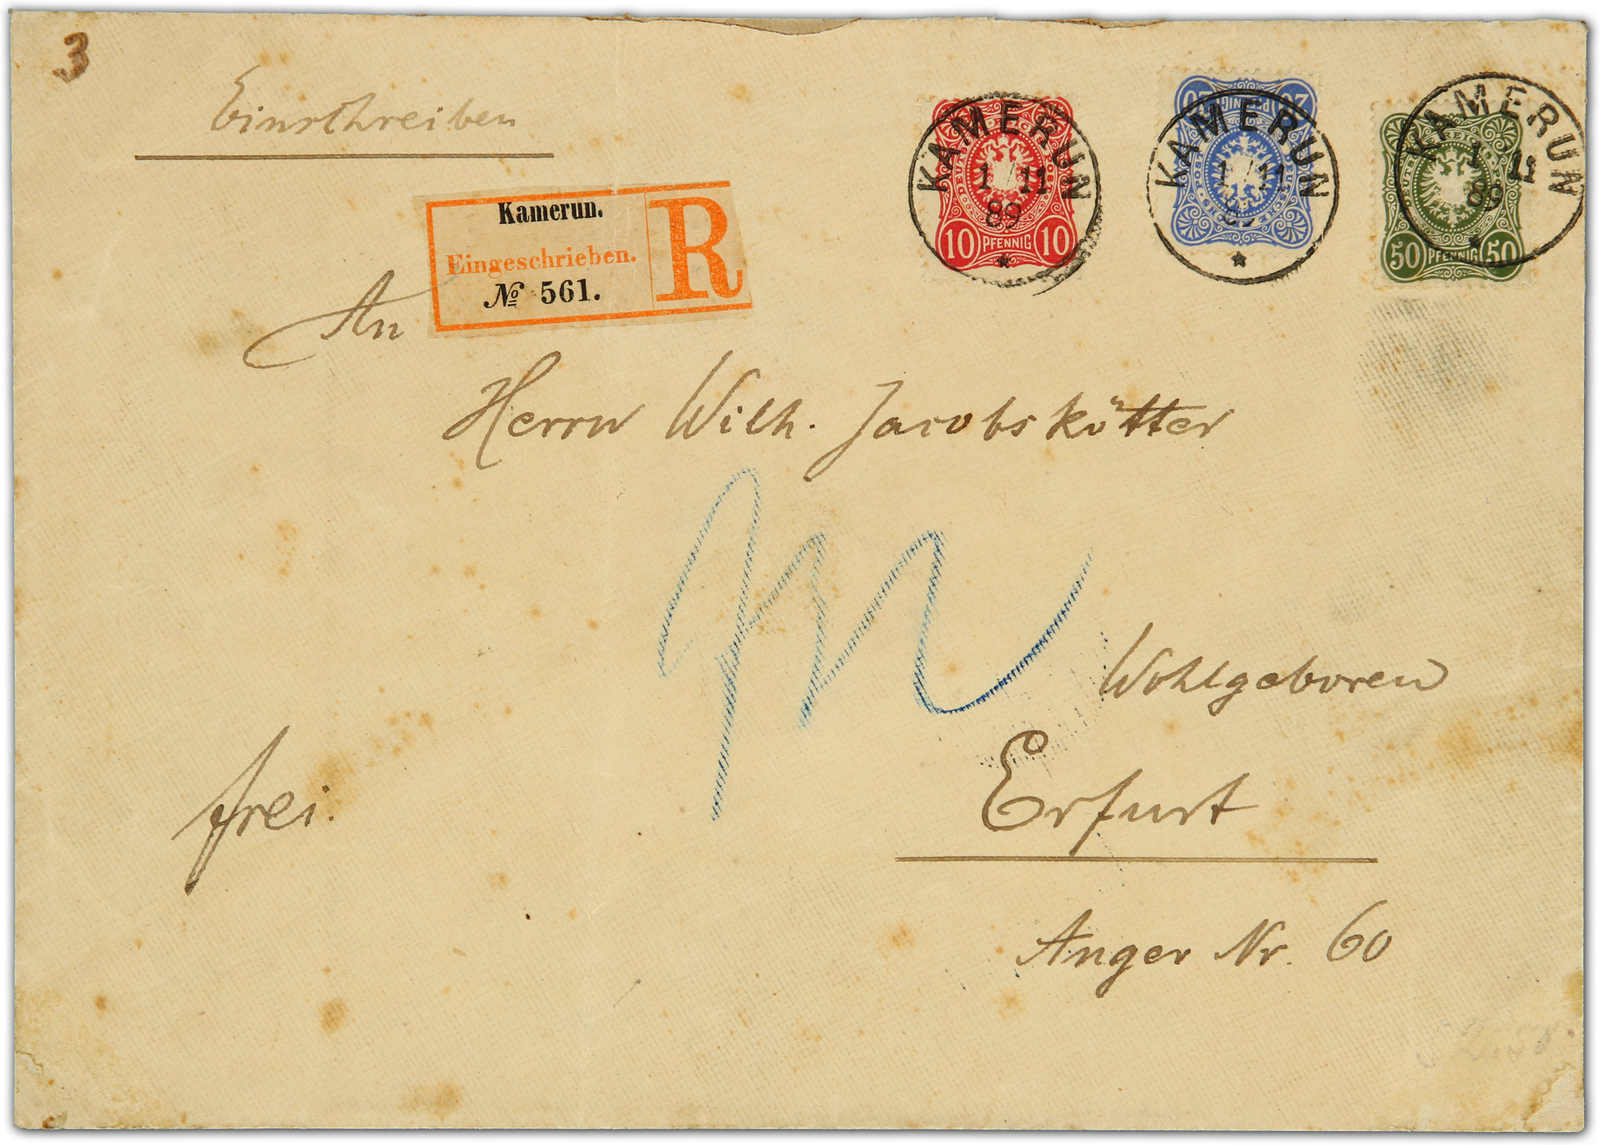 3
Einschreiben
Kamerun.
Eingeschrieben.
№ 561.
R
KAMERUN
1 11
89
10 PFENNIG 10
KAMERUN
1 11
20
KAMERUN
1 11
89
50 PFENNIG 50
An
Herrn Wilh. Jacobskötter
Wohlgeboren
frei.
Erfurt
Anger Nr. 60